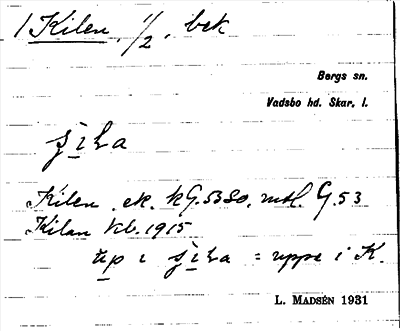 1 Kilen, 1/2, bek
Bergs sn.
Vadsbo hd. Skar. l.
Kilen ek. kG.53So, mtl. G.53
Kilan kb. 1915
= uppe i K.
L. MADSÉN 1931